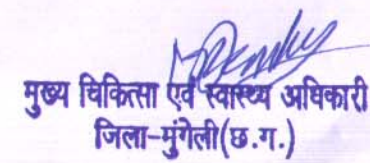 मुख्य चिकित्सा एवं स्वास्थ्य अधिकारी
जिला-मुंगेली(छ.ग.)